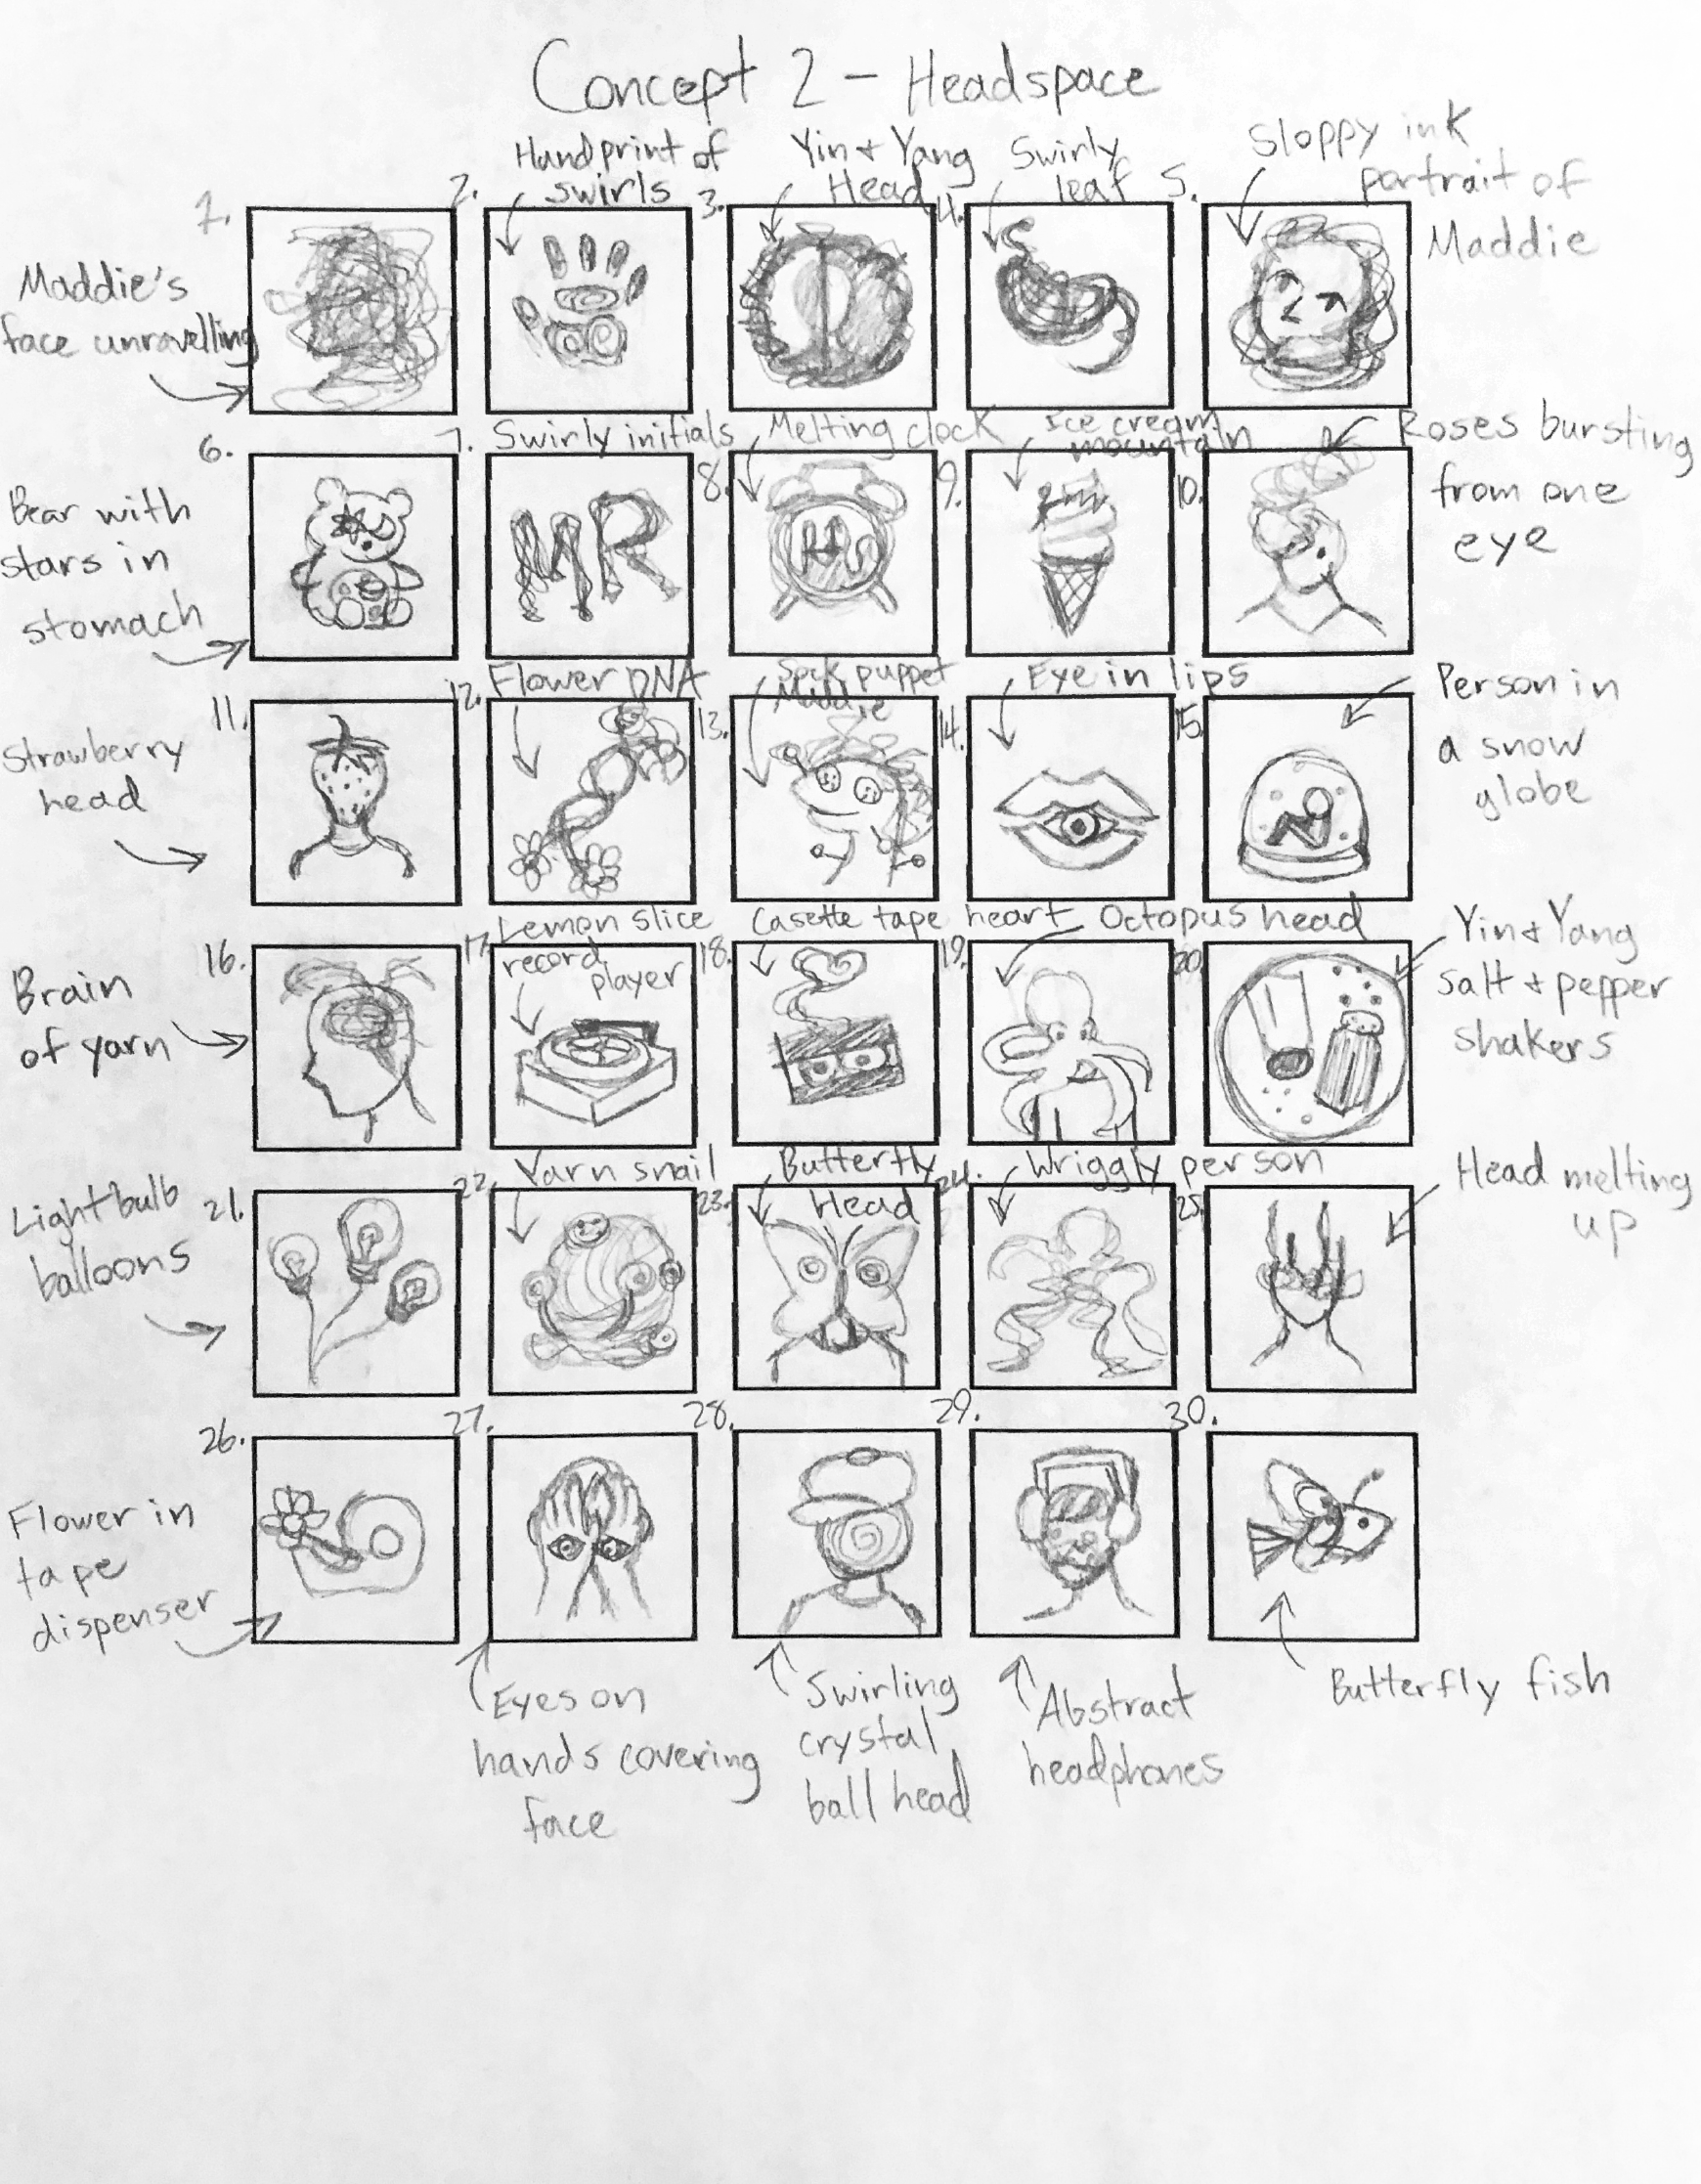 Concept 2 - Headspace
1.
Maddie's
face unravelling
2.
Handprint of
swirls
3.
Yin + Yang
Head
4.
Swirly
leaf
5.
Sloppy ink
portrait of
Maddie
6.
Bear with
stars in
stomach
7. Swirly initials
MR
8.
Melting clock
9.
Ice cream
mountain
10.
Roses bursting
from one
eye
11.
Strawberry
head
12.
Flower DNA
13.
Sock puppet
Maddie
14.
Eye in lips
15.
Person in
a snow
globe
16.
Brain
of yarn
17. Lemon slice
record
player
18.
Casette tape heart
19.
Octopus head
20.
Yin + Yang
salt + pepper
shakers
21.
Lightbulb
balloons
22.
Yarn snail
23.
Butterfly
Head
24.
Wriggly person
25.
Head melting
up
26.
Flower in
tape
dispenser
27.
Eyes on
hands covering
face
28.
Swirling
crystal
ball head
29.
Abstract
headphones
30.
Butterfly fish